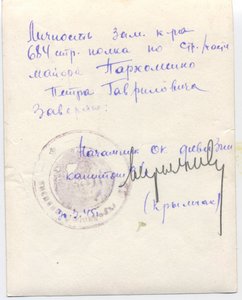 Личность Зам. к-ра
684 стр. полка по стр./части
майора Пархоменко
Петра Гавриловича
Заверяю:
Начальник ОК дивизии
капитан
(Крымчак)